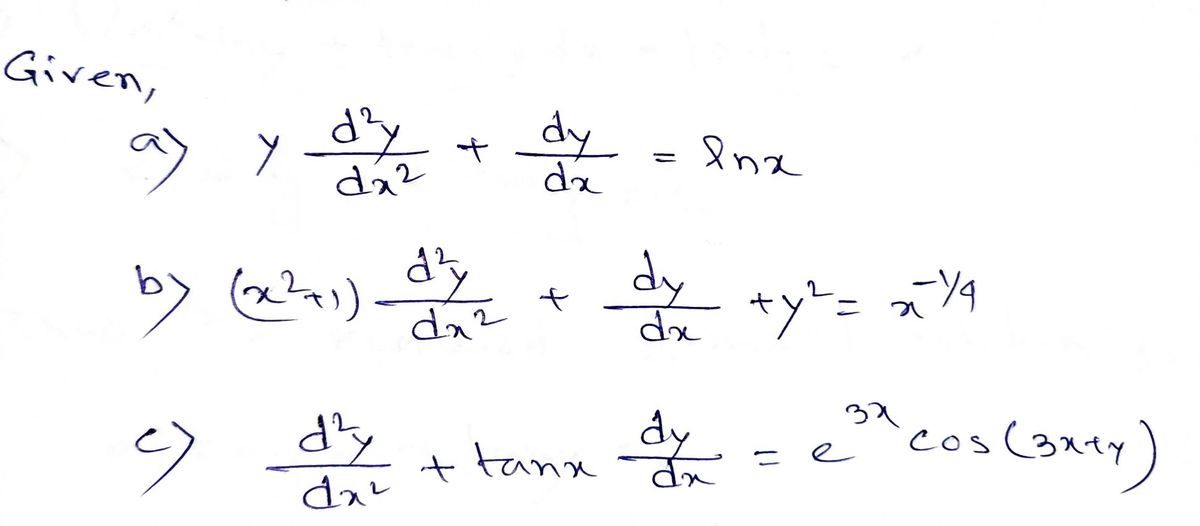 Given,
a) y d²y/dx² + dy/dx = lnx
b) (x²+1) d²y/dx² + dy/dx + y² = x^(-1/4)
c) d²y/dx² + tanx dy/dx = e^(3x) cos(3x+y)